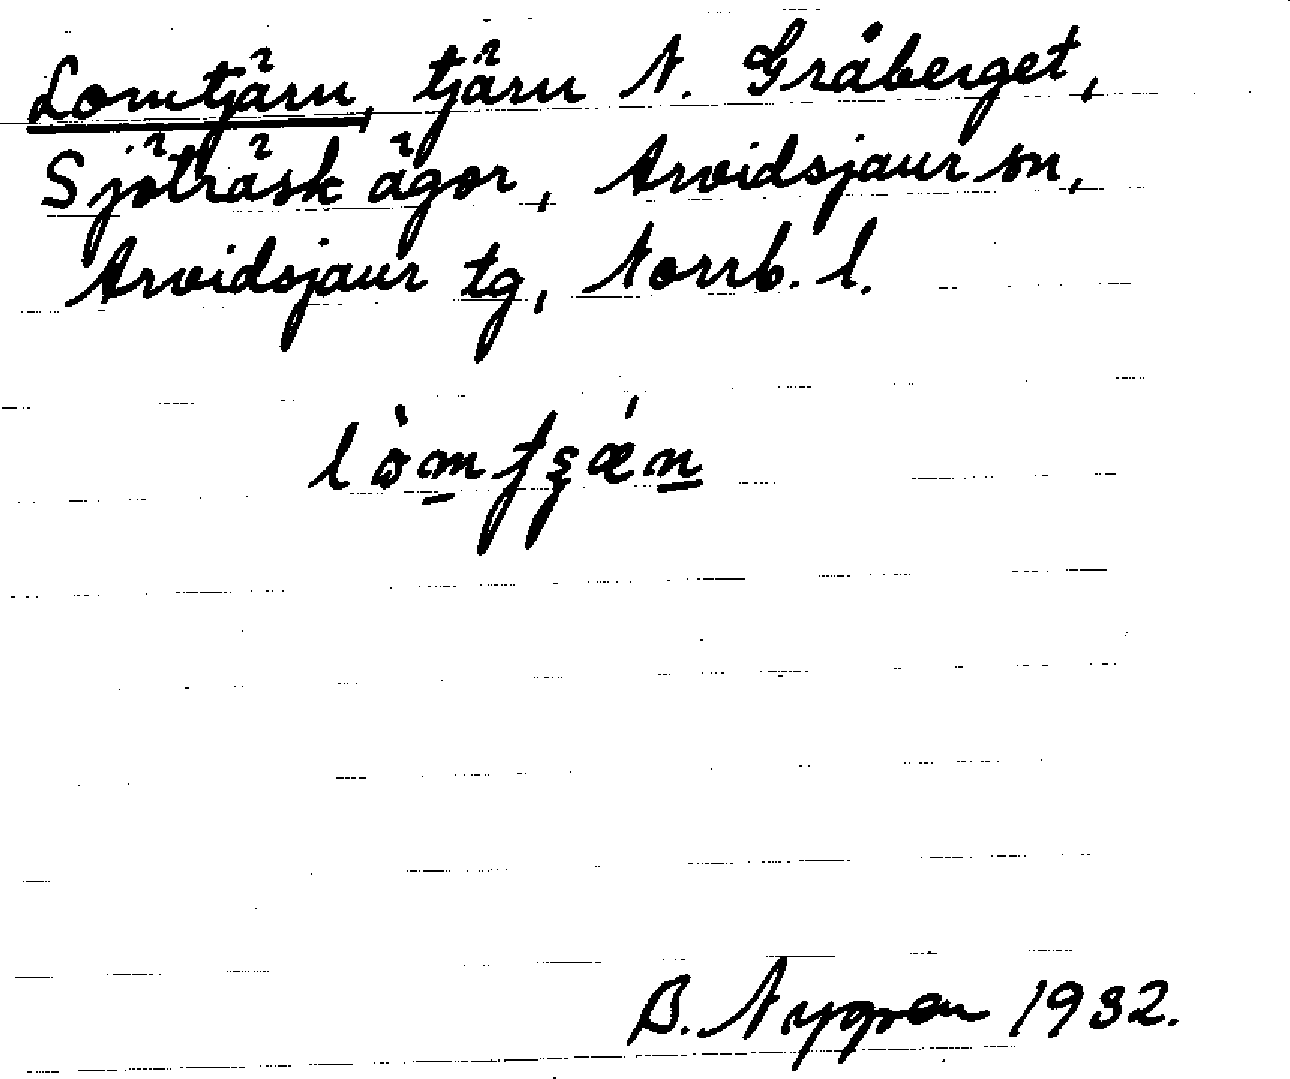 Lomtjärn, tjärn N. Gråberget,
Sjöträsk ägor, Arvidsjaur sn,
Arvidsjaur tg, Norrb. l.
B. Nygren 1932.